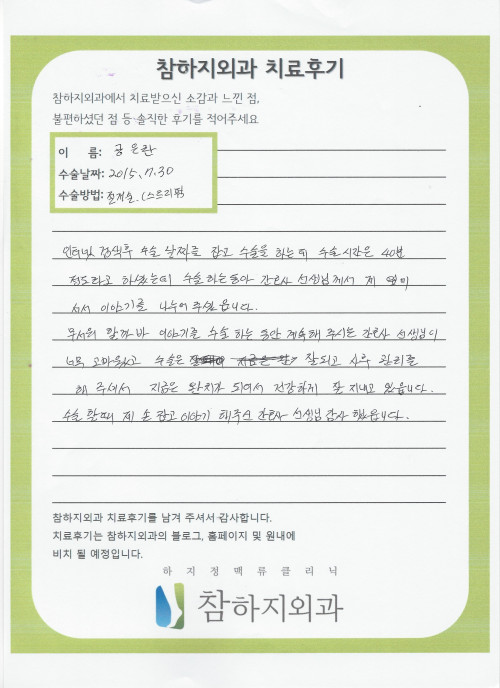 참하지외과 치료후기
참하지외과에서 치료받으신 소감과 느낀 점,
불편하셨던 점 등 솔직한 후기를 적어주세요
이 름: 궁은란
수술날짜: 2015. 7. 30
수술방법: 절제술. (스트리핑)
인터넷 검색후 수술 날짜를 잡고 수술을 하는데 수술시간은 40분
정도라고 하셨는데 수술하는동안 간호사 선생님께서 제 옆에
서서 이야기를 나누어 주셨읍니다.
무서워 할까바 이야기를 수술 하는 동안 계속해 주시는 간호사 선생님이
너무 고마웠고 수술은 잘되고 사후 관리를
해 주어서 지금은 완치가 되어서 건강하게 잘 지내고 있읍니다.
수술 할때 제 손 잡고 이야기 해주신 간호사 선생님 감사 했읍니다.
참하지외과 치료후기를 남겨 주셔서 감사합니다.
치료후기는 참하지외과의 블로그, 홈페이지 및 원내에
비치 될 예정입니다.
하지정맥류클리닉
참하지외과